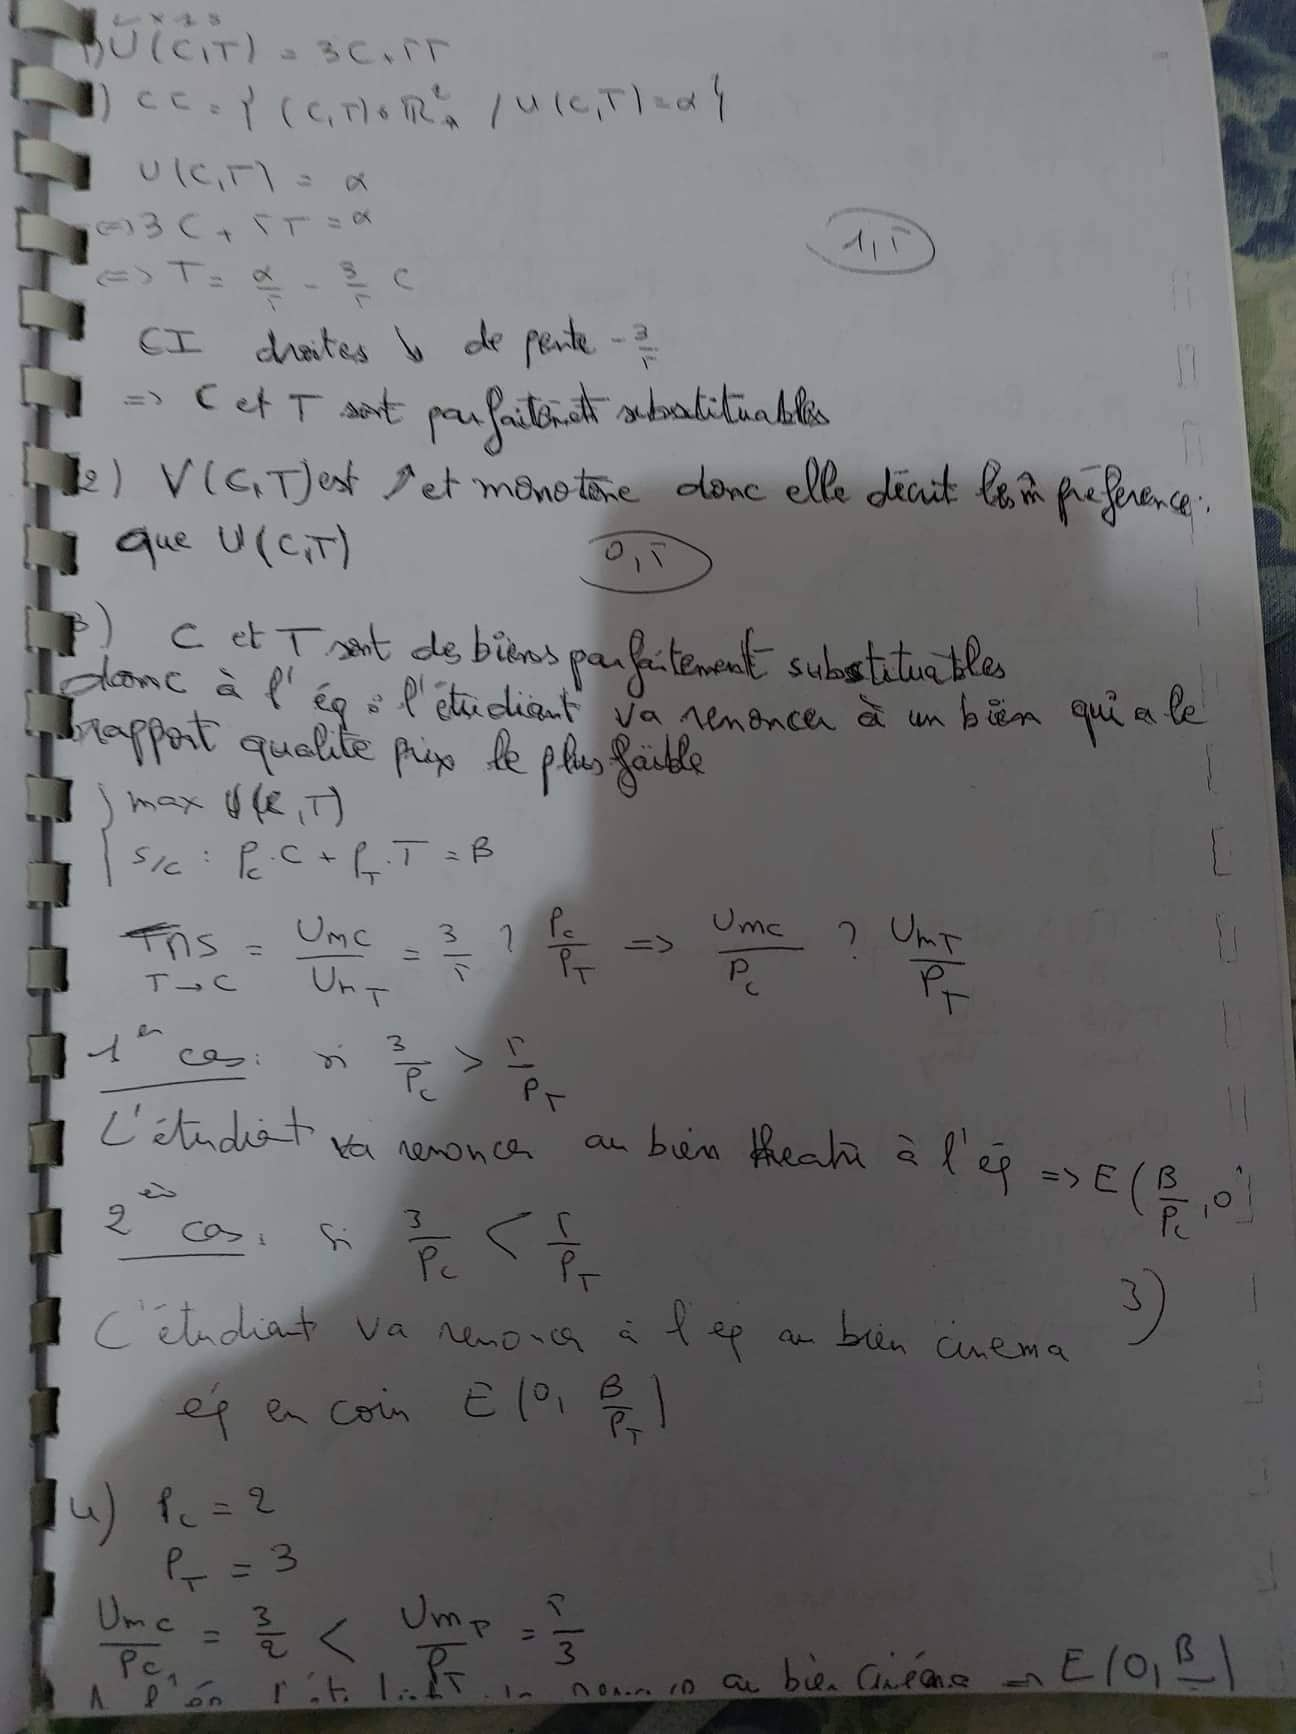 1) U(C,T) = 3C + 5T
1) CC = { (C,T) ∈ ℝ²₊ / U(C,T) = α }
U(C,T) = α
<=> 3C + 5T = α
<=> T = α/5 - 3/5 C
1,5
CI droites ↘ de pente - 3/5
=> C et T sont parfaitemett substituables
2) V(C,T) est ↗ et monotone donc elle décrit les m̂ préférence.
que U(C,T)
0,5
3) C et T sont des biens parfaitement substituables
donc à l'éq : l'étudiant va renoncer à un bien qui a le
rapport qualité prix le plus faible
{ max U(C,T)
s/c : Pc . C + PT . T = B
TMS T→C = Umc/UmT = 3/5 ? Pc/PT => Umc/Pc ? UmT/PT
1er cas : si 3/Pc > 5/PT
L'étudiant va renoncer au bien theatre à l'éq => E(B/Pc, 0)
2è cas : si 3/Pc < 5/PT
3)
L'étudiant va renoncer à l'éq au bien cinema
éq en coin E(0, B/PT)
4) Pc = 2
PT = 3
Umc/Pc = 3/2 < UmT/PT = 5/3
A l'éq l'étudiant au bien cinéma => E(0, B